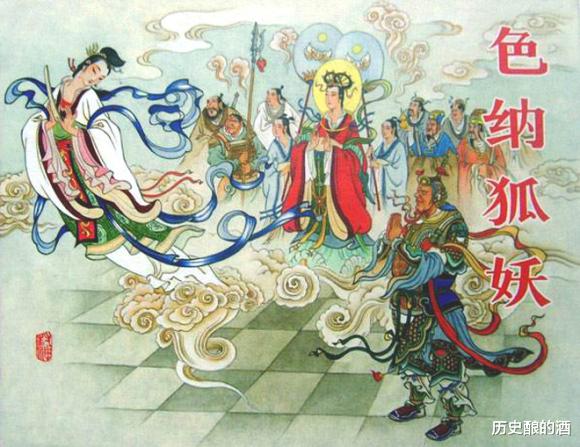 色纳狐妖
历史酿的酒